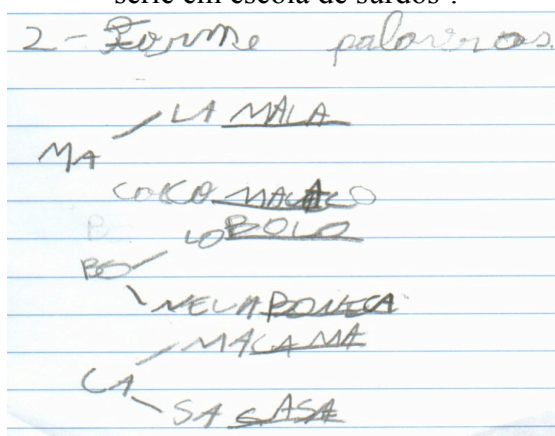 série em escola de surdos".
2 - Forme palavras.
LA MALA
MA
COCO MACACO
LO BOLO
BO
NECA BONECA
MA CAMA
CA
SA CASA